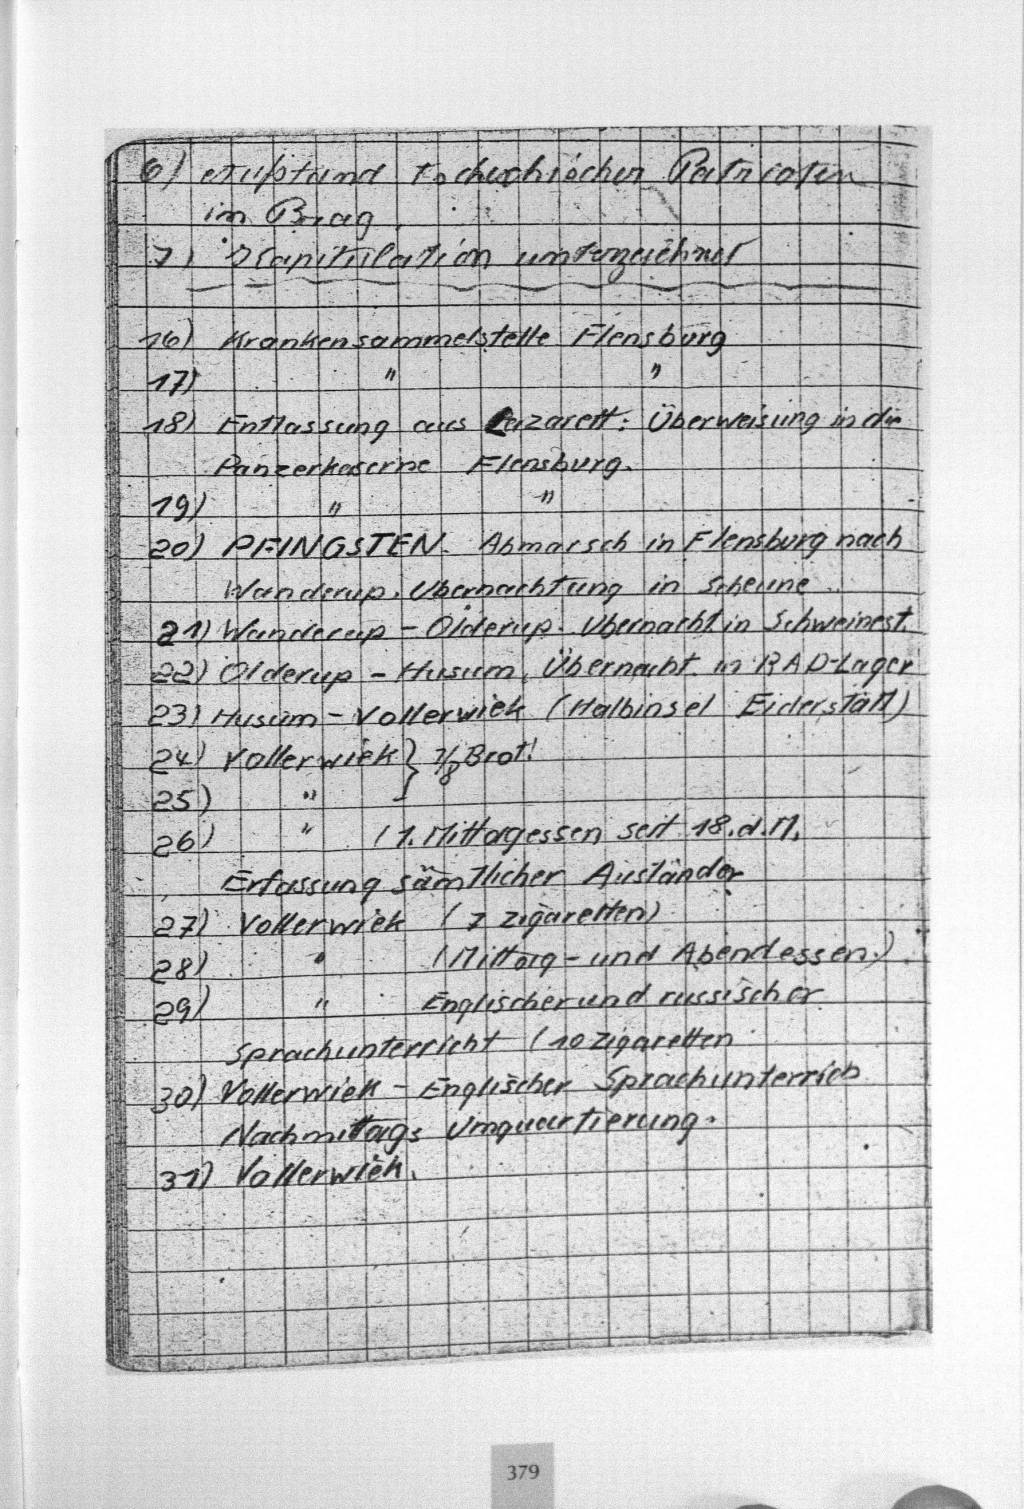 6) Aufstand tschechischer Patrioten
in Prag.
7) Kapitulation unterzeichnet
16) Krankensammelstelle Flensburg
17) " "
18) Entlassung aus Lazarett: Überweisung in die
Panzerkaserne Flensburg.
19) " "
20) PFINGSTEN. Abmarsch in Flensburg nach
Wanderup. Übernachtung in Scheune
21) Wanderup - Olderup. Übernacht. in Schweinest.
22) Olderup - Husum, Übernacht. in RAD-Lager
23) Husum - Vollerwiek (Halbinsel Eiderstätt)
24) Vollerwiek } 1/8 Brot!
25) "
26) " (1. Mittagessen seit 18. d. M.
Erfassung sämtlicher Ausländer
27) Vollerwiek (7 Zigaretten)
28) " (Mittag- und Abendessen.)
29) " Englischer und russischer
Sprachunterricht (10 Zigaretten
30) Vollerwiek - Englischer Sprachunterrich
Nachmittags Umquartierung.
31) Vollerwiek.
379